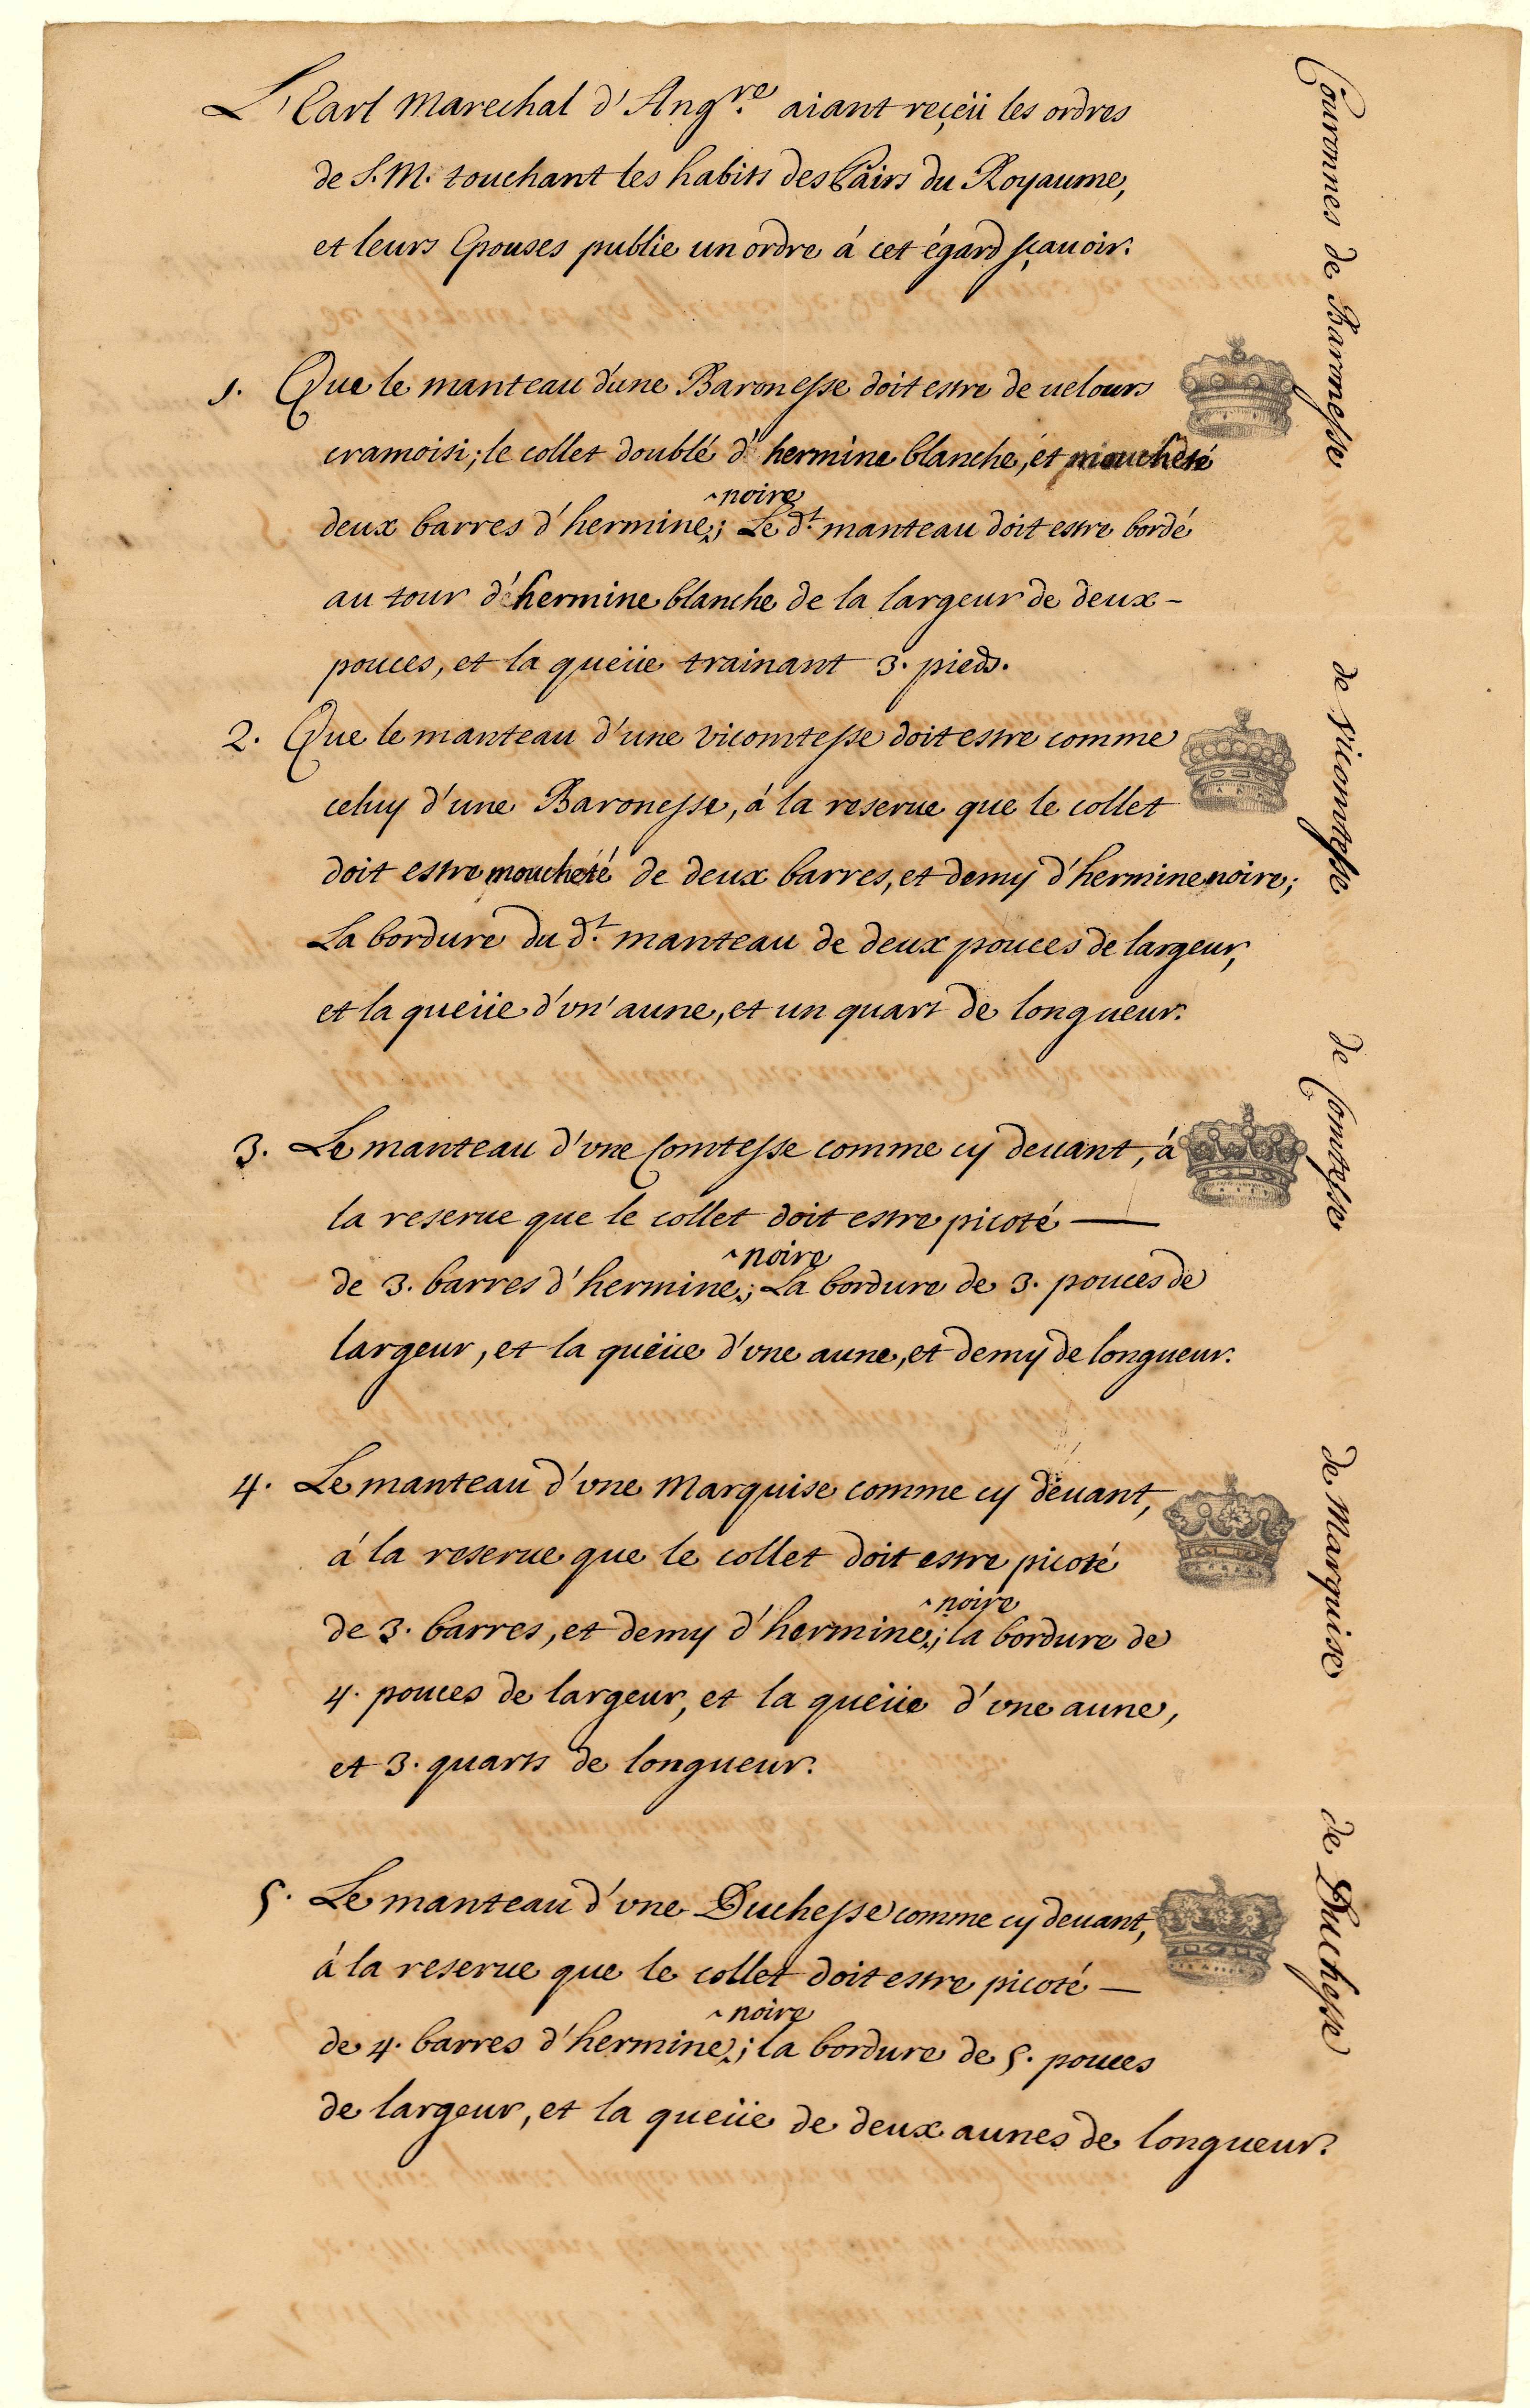 L'Earl Marechal d'Angre. aiant reçeü les ordres
de S. M. touchant les habits des Pairs du Royaume,
et leurs Epouses publie un ordre á cet égard sçauoir.
1. Que le manteau d'une Baronesse doit estre de uelours
cramoisi; le collet doublé d'hermine blanche, et moucheté
^noire
deux barres d'hermine^; Le dt. manteau doit estre bordé
au tour d'hermine blanche de la largeur de deux-
pouces, et la queüe trainant 3. pieds.
2. Que le manteau d'une vicomtesse doit estre comme
celuy d'une Baronesse, á la reserue que le collet
doit estre moucheté de deux barres, et demy d'hermine noire;
La bordure du dt. manteau de deux pouces de largeur,
et la queüe d'vn'aune, et un quart de longueur.
3. Le manteau d'vne Comtesse comme cy deuant, á
la reserue que le collet doit estre picoté —
^noire
de 3. barres d'hermine^; La bordure de 3. pouces de
largeur, et la queüe d'vne aune, et demy de longueur.
4. Le manteau d'vne Marquise comme cy deuant,
á la reserue que le collet doit estre picoté
^noire
de 3. barres, et demy d'hermine^; la bordure de
4. pouces de largeur, et la queüe d'vne aune,
et 3. quarts de longueur.
5. Le manteau d'vne Duchesse comme cy deuant,
á la reserue que le collet doit estre picoté —
^noire
de 4. barres d'hermine^; la bordure de 5. pouces
de largeur, et la queüe de deux aunes de longueur.
Couronnes de Baronesse
de Vicomtesse
de Comtesse
de Marquise
de Duchesse